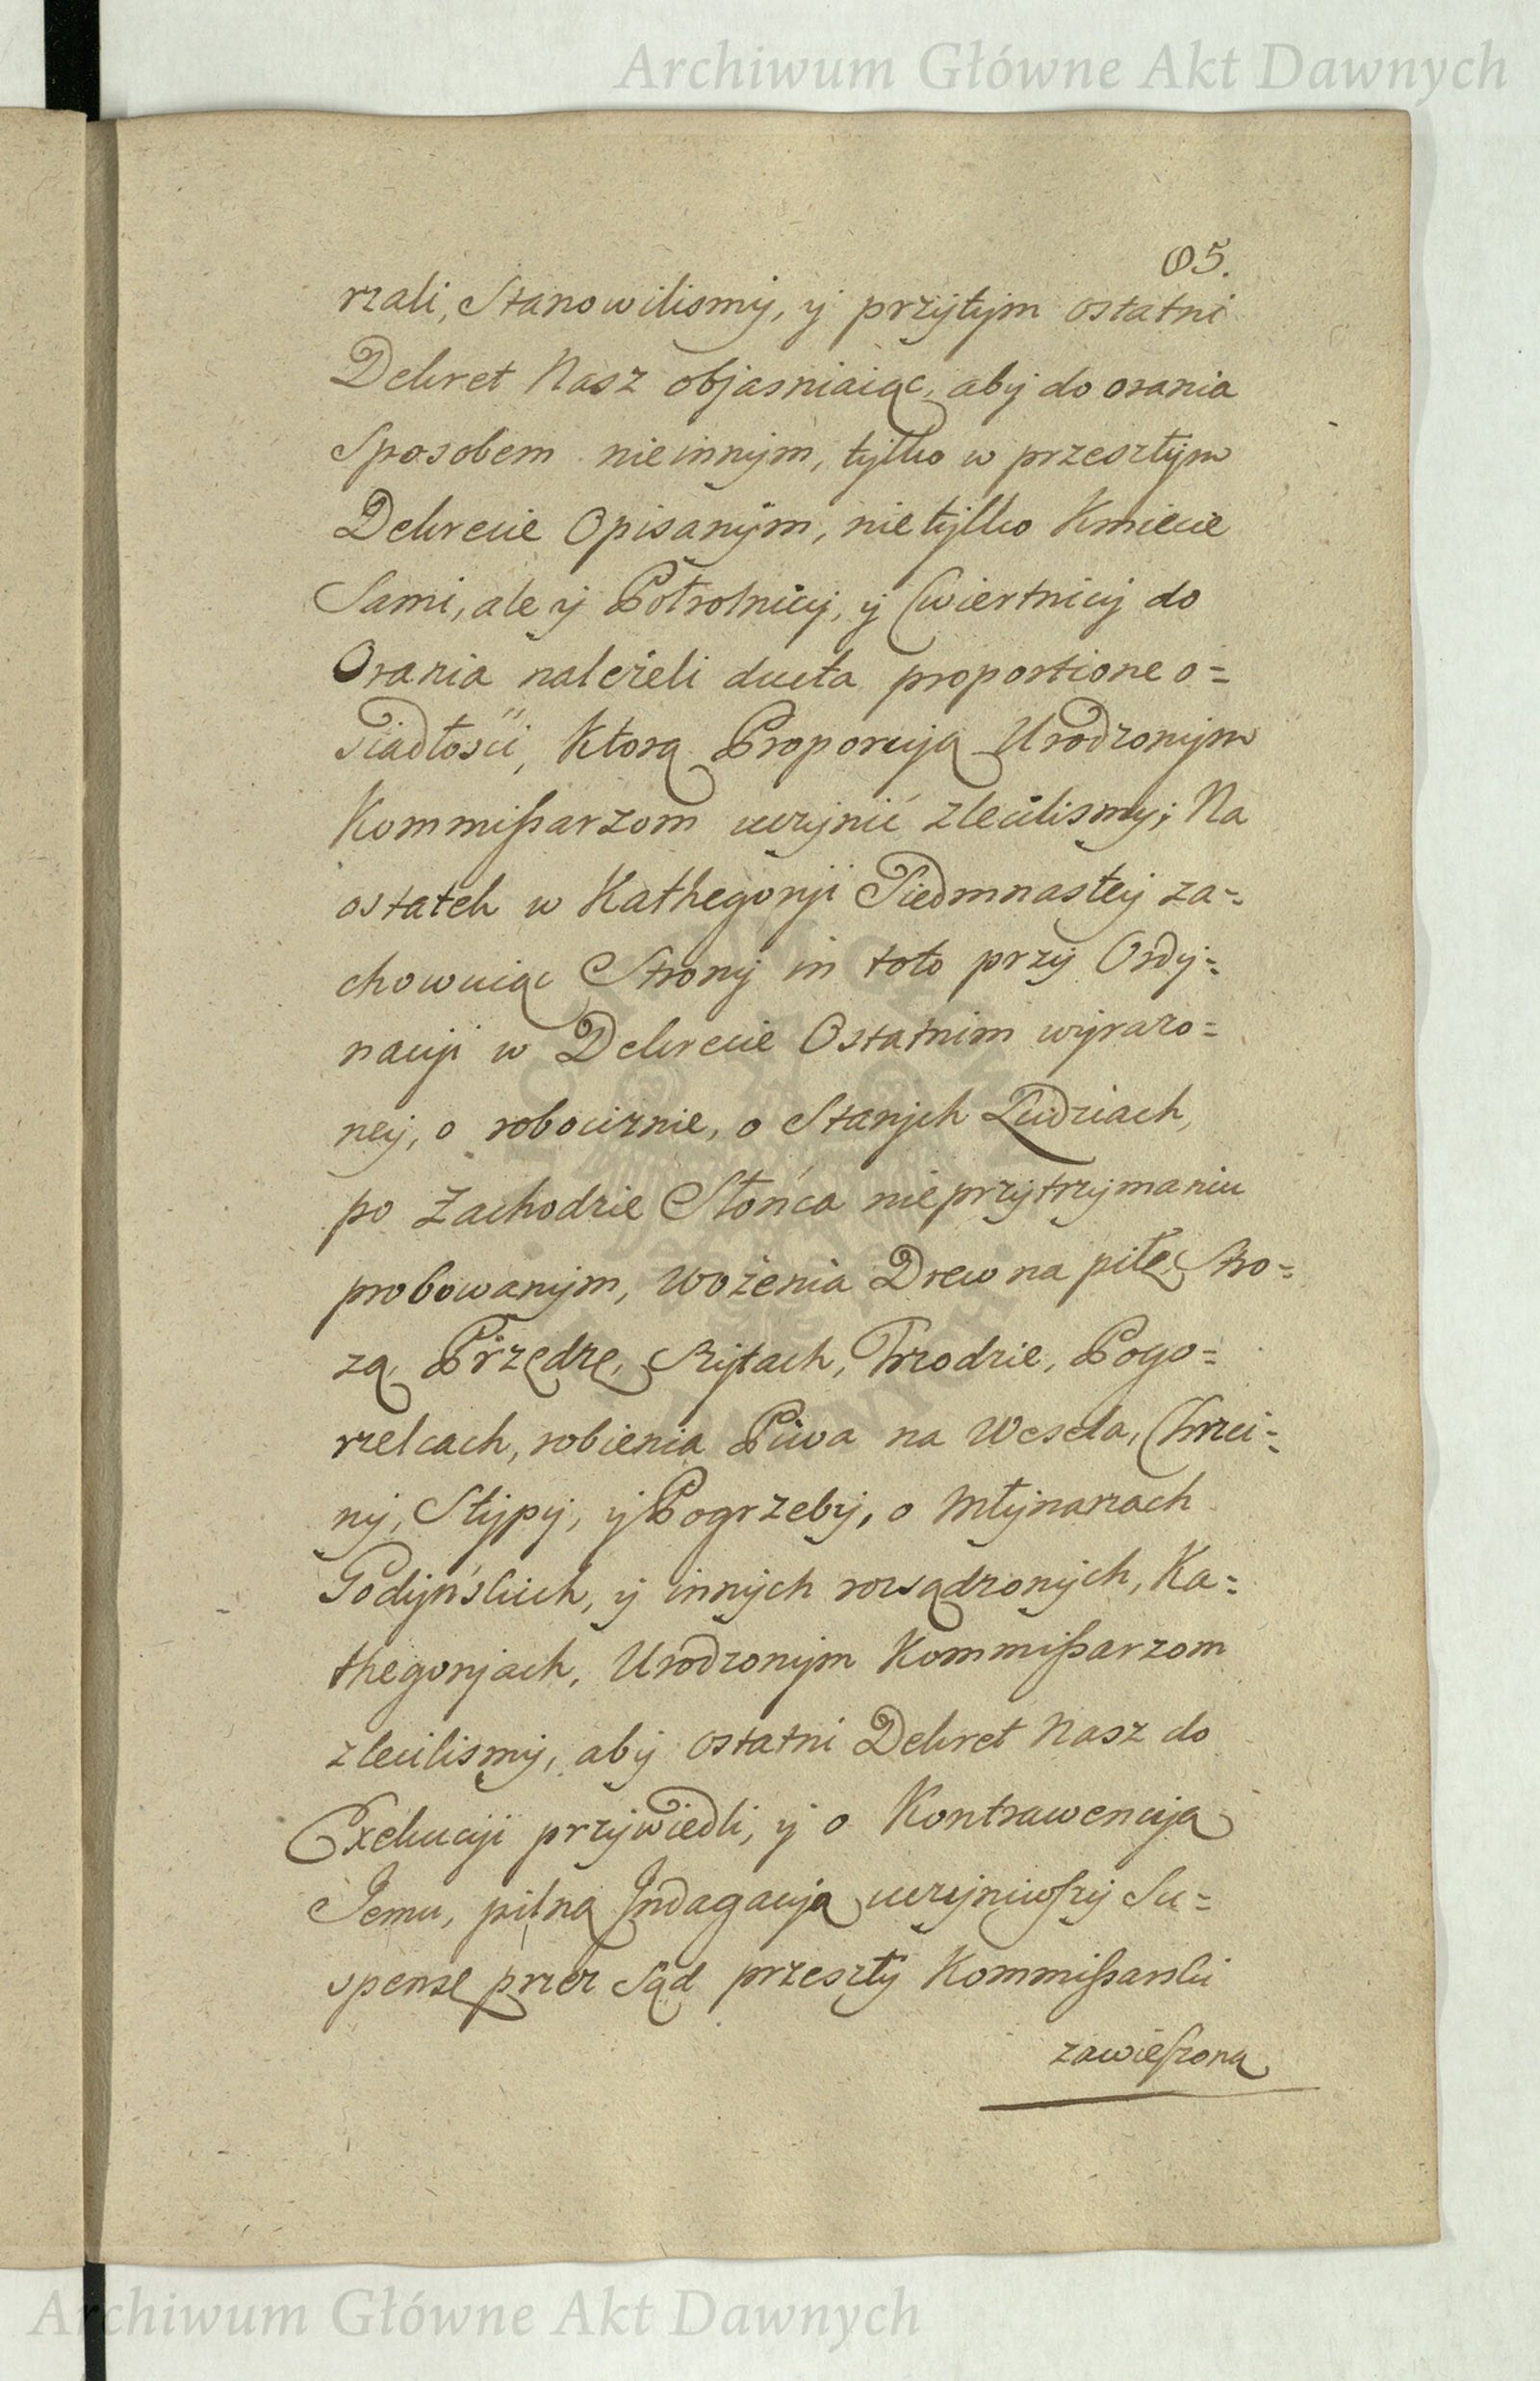 Archiwum Główne Akt Dawnych
85.
rzali, Stanowilismy, y przytym ostatni
Dekret Nasz objasniaiąc, aby do orania
Sposobem nieinnym, tylko w przeszłym
Dekrecie Opisanym, nietylko Kmiecie
Sami, ale y Połrolnicy, y Cwiertnicy do
Orania należeli ducta proportione o=
siadłosci, Ktorą Proporcyą Urodzonym
Kommißarzom uczynić zlecilismy; Na
ostatek w Kathegoryi Siedmnastey za=
chowuiąc Strony in toto przy Ordy=
nacyi w Dekrecie Ostatnim wyrażo=
ney, o robociznie, o Starych Ludziach,
po Zachodzie Słońca nieprzytrzymaniu
probowanym, Wożenia Drew na piłę, Stro=
żą Przędzę, Rżytach, Trzodzie, Pogo=
rzelcach, robienia Piwa na Wesela, Chrzci=
ny, Stypy, y Pogrzeby, o Młynarzach
Godyńskich, y innych rozsądzonych, Ka=
thegoryach, Urodzonym Kommißarzom
zlecilismy, aby ostatni Dekret Nasz do
Exekucyi przywiedli, y o Kontrawencyą
Jemu, pilną Indagacyą uczyniwszy Su=
spensę przez Sąd przeszły Kommißarski
zawieszoną
Archiwum Główne Akt Dawnych